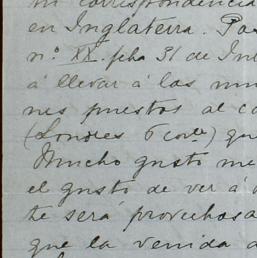 mi correspondencia
en Inglaterra. Pas
n.º XX. fcha 31 de
á llevar á las
nes puestos al co
(Londres 6 corte.) qu
Mucho gusto me
el gusto de ver á
te será provechosa
que la venida